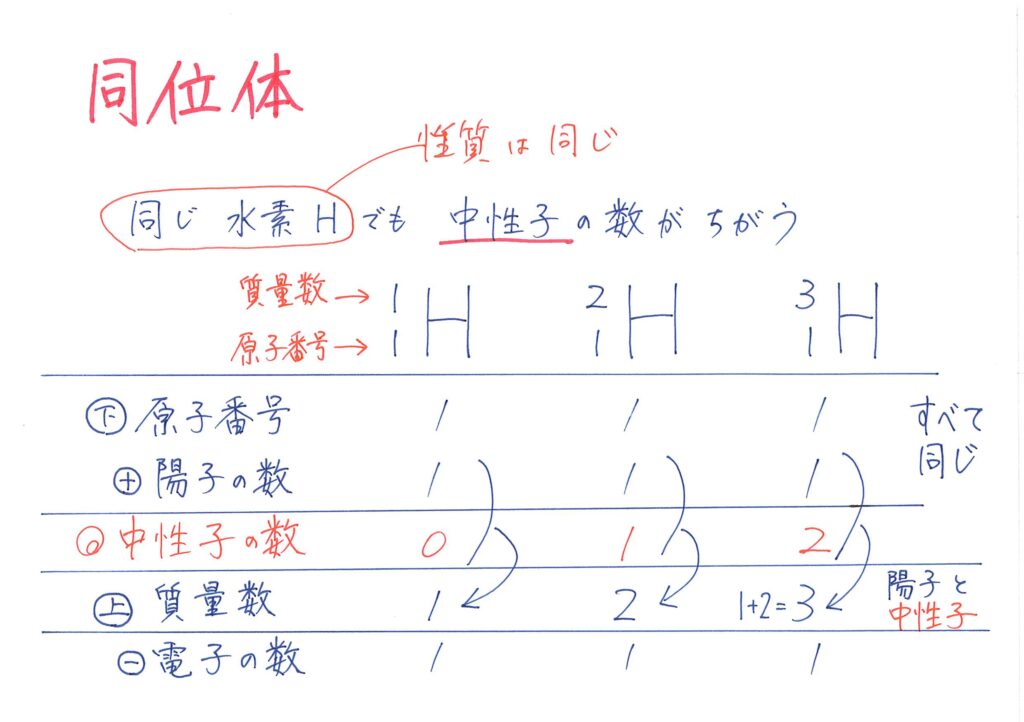 同位体
性質は同じ
同じ 水素 H でも 中性子の数がちがう
質量数→ 1 H 2 H 3 H
原子番号→ 1 1 1
下 原子番号 1 1 1 すべて
+ 陽子の数 1 1 1 同じ
0 中性子の数 0 1 2
上 質量数 1 2 1+2=3 陽子と
中性子
− 電子の数 1 1 1